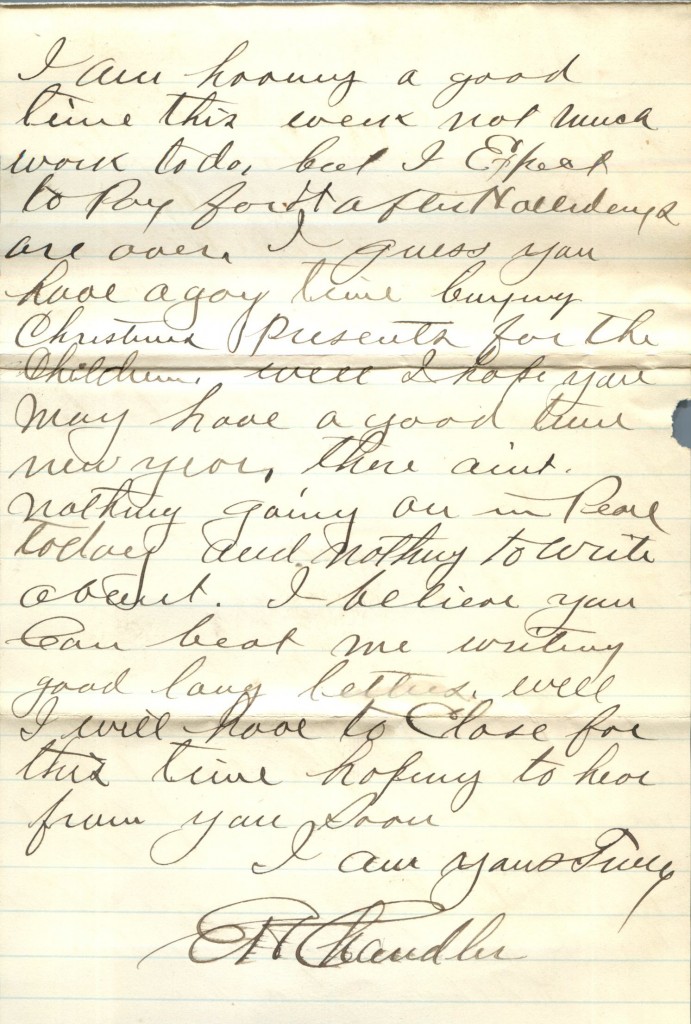 I am having a good
time this week not much
work to do, but I Expect
to Pay for it after Hollidays
are over. I guess you
have a gay time buying
Christmas Presents for the
Children. well I hope you
may have a good time
new year, there aint.
nothing going on in Pearl
today and nothing to write
about. I believe you
Can beat me writing
good long letters. well
I will have to Close for
this time hoping to hear
from you soon
I am yours Truly
EH Chandler